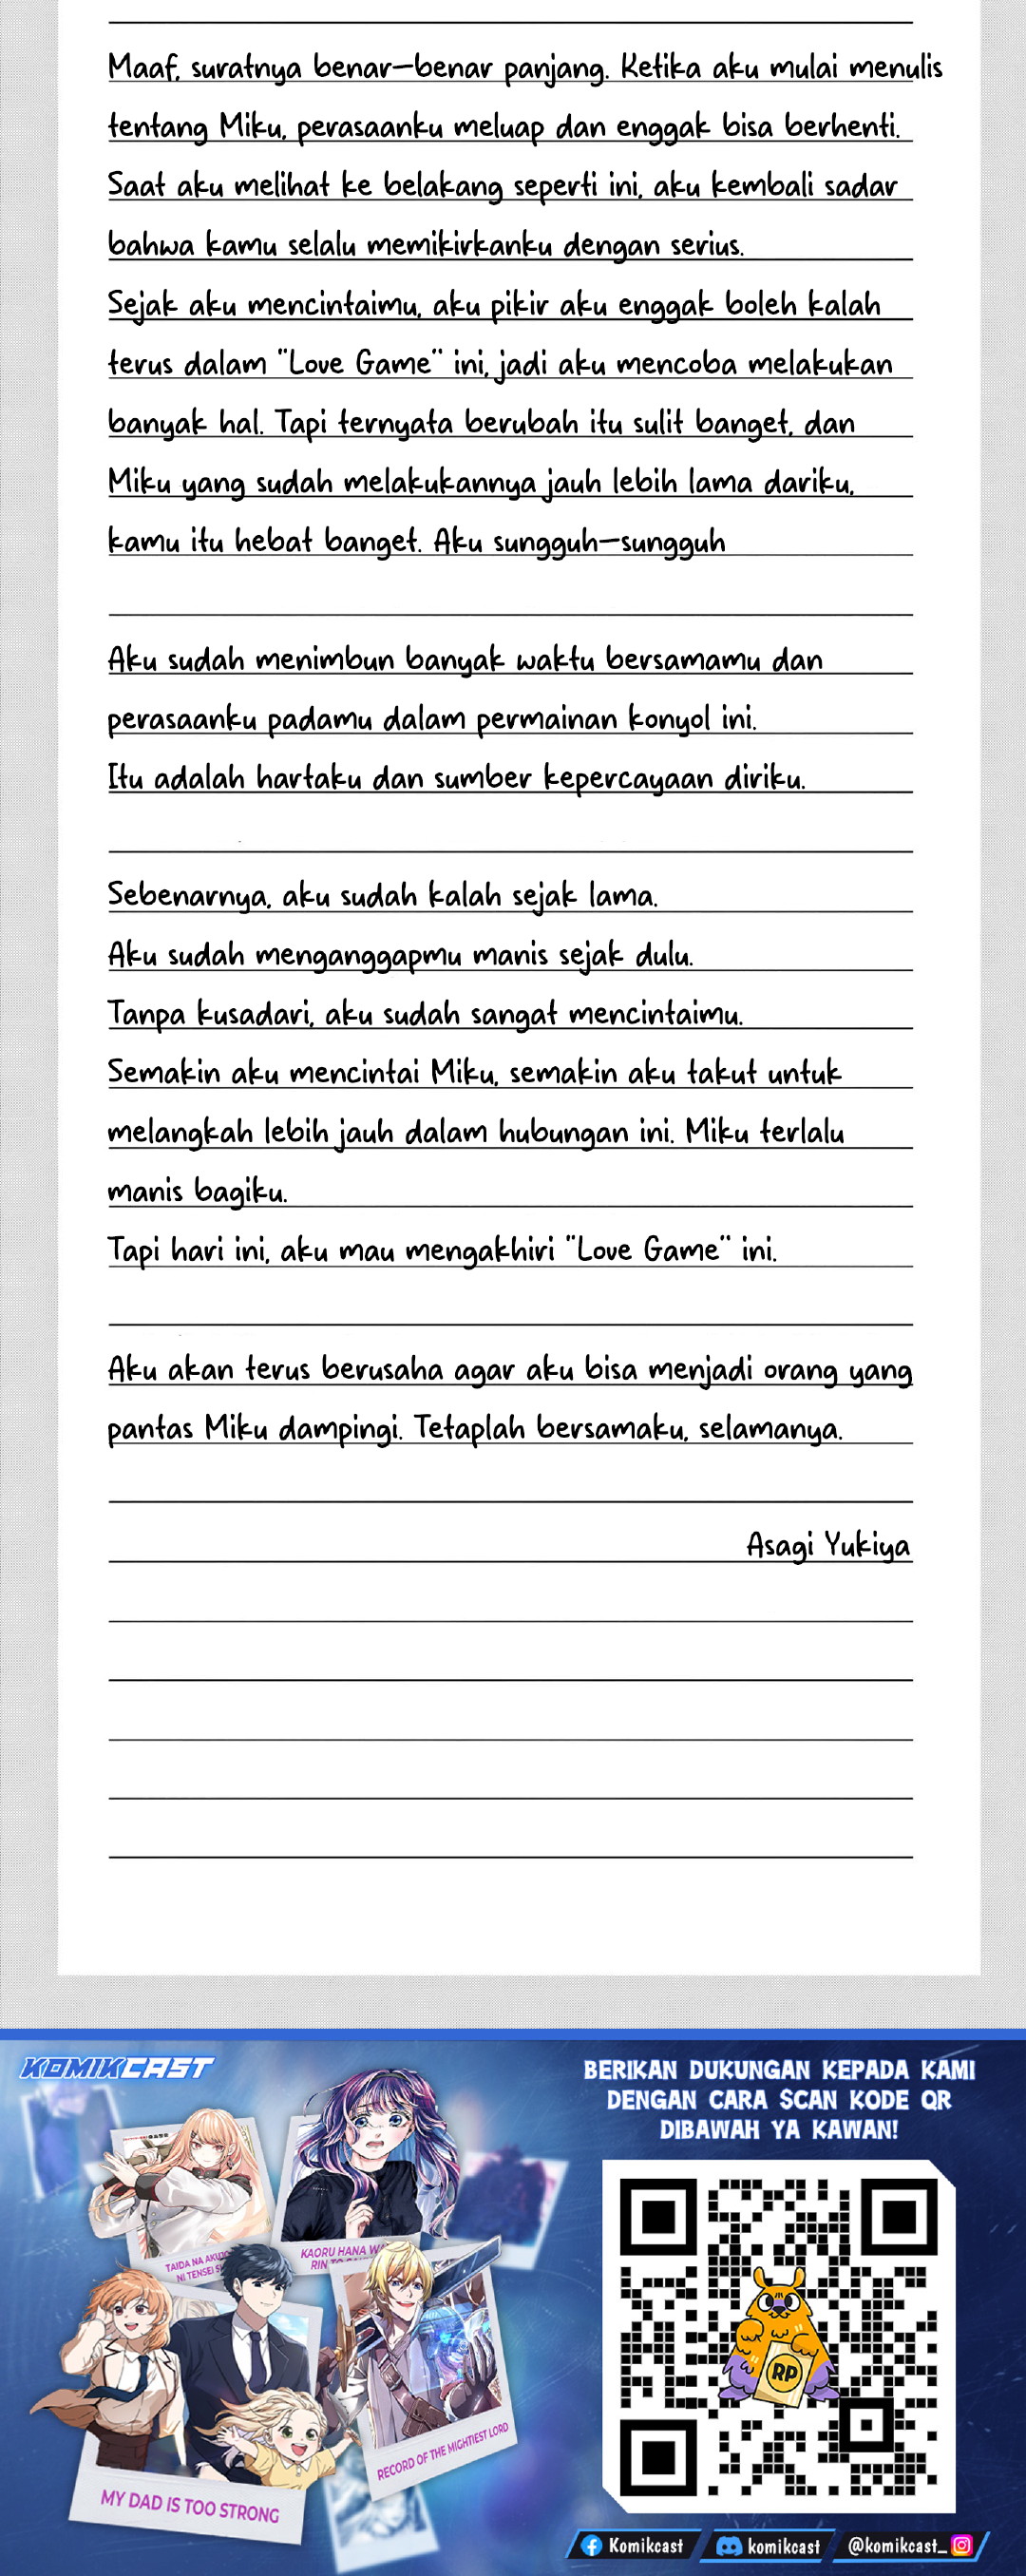 Maaf, suratnya benar-benar panjang. Ketika aku mulai menulis
tentang Miku, perasaanku meluap dan enggak bisa berhenti.
Saat aku melihat ke belakang seperti ini, aku kembali sadar
bahwa kamu selalu memikirkanku dengan serius.
Sejak aku mencintaimu, aku pikir aku enggak boleh kalah
terus dalam "Love Game" ini, jadi aku mencoba melakukan
banyak hal. Tapi ternyata berubah itu sulit banget, dan
Miku yang sudah melakukannya jauh lebih lama dariku,
kamu itu hebat banget. Aku sungguh-sungguh
Aku sudah menimbun banyak waktu bersamamu dan
perasaanku padamu dalam permainan konyol ini.
Itu adalah hartaku dan sumber kepercayaan diriku.
Sebenarnya, aku sudah kalah sejak lama.
Aku sudah menganggapmu manis sejak dulu.
Tanpa kusadari, aku sudah sangat mencintaimu.
Semakin aku mencintai Miku, semakin aku takut untuk
melangkah lebih jauh dalam hubungan ini. Miku terlalu
manis bagiku.
Tapi hari ini, aku mau mengakhiri "Love Game" ini.
Aku akan terus berusaha agar aku bisa menjadi orang yang
pantas Miku dampingi. Tetaplah bersamaku, selamanya.
Asagi Yukiya
KOMIKCAST
BERIKAN DUKUNGAN KEPADA KAMI
DENGAN CARA SCAN KODE QR
DIBAWAH YA KAWAN!
TAIDA NA
NI TENSEI
KAORU HANA
RIN
RECORD OF THE MIGHTIEST LORD
MY DAD IS TOO STRONG
RP
Komikcast
komikcast
@komikcast_